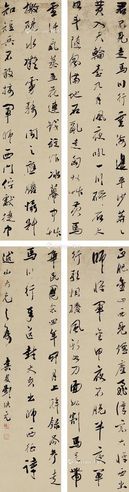 君不見走馬川行雪海邊平沙莽莽黃
入天輪臺九月風夜吼一川碎石大
如斗隨風滿地石亂走匈奴草黃馬
正肥金山西見煙塵飛漢家大將西出
師將軍金甲夜不脫半夜軍行戈相
撥風頭如刀面如割馬毛帶
雪汗氣蒸五花連錢旋作冰幕中草
檄硯水凝虜騎聞之應膽懾料
知短兵不敢接軍師西門佇獻捷
馬川行奉送封大夫出師西征